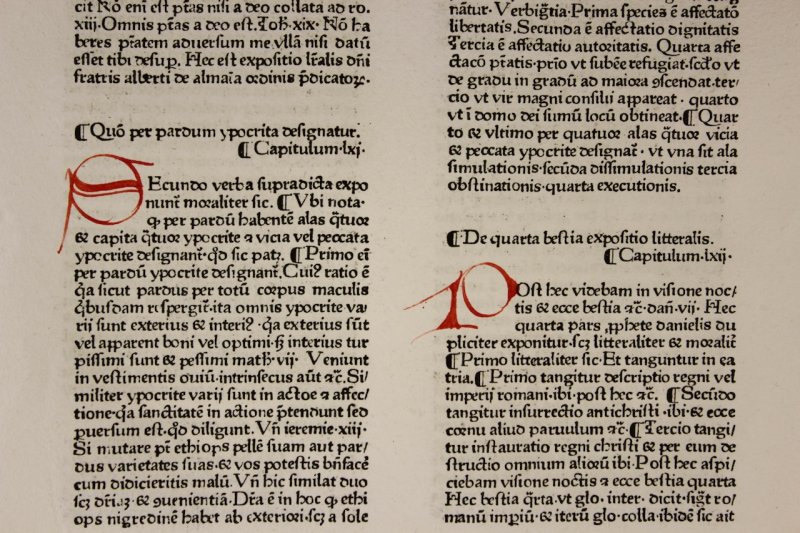 cit Nō eni͂ est ptās nisi a deo collata ad ro.
xiij. Omnis ptās a deo est. Ioh̄. xix. Nō ha
beres ptātem adversum me vllā nisi datū
esset tibi desup. Hec est expositio lr̄alis dn̄i
fratris alberti de almaīa ordinis p̄dicatoꝝ.
¶ Quō per pardum ypocrita designatur.
¶ Capitulum. lxj.
SEcundo verba supradicta expo
nunt̄ moraliter sic. ¶ Vbi nota.
ꝙ per pardū habentē alas q̄tuor
et capita q̄tuor ypocrite et vicia vel peccata
ypocrite designant̄. qd̄ sic patꝫ. ¶ Primo ei͂
per pardū ypocrite designant̄. Cuiꝰ ratio ē
q̄a sicut pardus per totū corpus maculis
q̄busdam respergit̄. ita omnis ypocrite va/
rij sunt exterius et interiꝰ. q̄a exterius sūt
vel apparent boni vel optimi. s̄ interius tur
pissimi sunt et pessimi math̄. vij. Veniunt
in vestimentis ouiū. intrinsecus aūt ⁊c̄. Si/
militer ypocrite varij sunt in actōe et affec/
tione. q̄a sanctitatē in actione p̄tendunt sed
puersum est. qd̄ diligunt. Vn̄ ieremie. xiij.
Si mutare pt̄ ethiops pellē suam aut par/
dus varietates suas. et vos potestis bn̄facē
cum didiceritis malū. Vn̄ hic similat duo
scꝫ dr̄iaꝫ. et ꝯuenientiā. Dr̄a ē in hoc ꝙ ethi
ops nigredinē habet ab exteriori. scꝫ a sole
natur. Verbigr̄tia. Prima species ē affectatō
libertatis. Secunda ē affectatio dignitatis
Tercia ē affectatio autoritatis. Quarta affe
ctacō ptātis. prīo vt subēe refugiat. scd̄o vt
de gradu in gradū ad maiora ꝯscendat. ter/
cio vt vir magni consilii appareat. quarto
vt ī domo dei sumū locū obtineat. ¶ Quar
to et vltimo per quatuor alas q̄tuor vicia
et peccata ypocrite designat̄. vt vna sit ala
simulationis. secūda dissimulationis tercia
obstinationis. quarta executionis.
¶ De quarta bestia expositio litteralis.
¶ Capitulum. lxij.
POst hec videbam in visione noc/
tis et ecce bestia ⁊c̄. dan̄. vij. Hec
quarta pars ꝓphete danielis du
pliciter exponitur. scꝫ litteraliter et moralit̄
¶ Primo litteraliter sic. Et tanguntur in ea
tria. ¶ Primo tangitur descriptio regni vel
imperij romani. ibi. post hec ⁊c̄. ¶ Secūdo
tangitur insurrectio antichristi. ibi. et ecce
cornu aliud paruulum ⁊c̄. ¶ Tercio tangi/
tur instauratio regni christi et per eum de
structio omnium aliorū ibi. Post hec aspi/
ciebam visione noctis et ecce bestia quarta
Hec bestia q̄rta. vt glo. inter. dicit. sigt̄ ro/
manū imperiū. et iterū glo. colla. ibidē sic ait